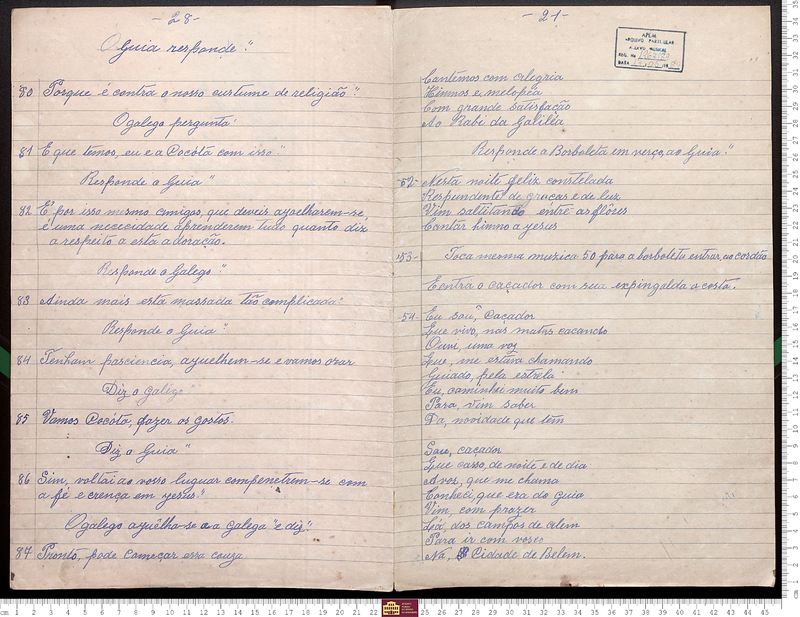 - 28 -
O Guia responde "
80 Porque é contra o nosso custume de religião "
O galego pergunta "
81 E que temos, eu e a Cocóta com isso "
Responde o Guia "
82 E' por isso mesmo amigos, que deveis ajoelharem-se,
é uma nececidade aprenderem tudo quanto diz
a respeito a esta adoração.
Responde o Galego "
83 Ainda mais esta massada tão complicada "
Responde o Guia "
84 Tenham pasciencia, ajuelhem-se e vamos orar
Diz o galego "
85 Vamos Cocóta, fazer os gostos.
Diz o Guia "
86 Sim, voltai ao vosso luguar compenetrem-se com
a fé e crença em yesus "
O galego ajuêlha-se a galega "e diz"
87 Pronto, pode começar essa couza
- 21 -
APEM
ARQUIVO PARTICULAR
ACERVO MUSICAL
REG. No
DATA
Cantemos com alegria
Hinnos e melopéa
Com grande satisfação
Ao Rabi da Galiléa
Responde a Borboleta em verço, ao Guia "
52- Nesta noite feliz constelada
Respundente de graças e de luz
Vim saltitando entre as flôres
Cantar hinno a yesus
53- Toca mesma muzica 50 para a borboleta entrar, ao cordão
E entra o caçador com sua expingalda a costa.
54- Eu sou, Caçador
Que vivo, nas matas caçando
Ouvi, uma voz
Que, me estava chamando
Guiado, pela estrela
Eu, caminhei muito bem
Para, vim saber
Da, novidade que tem
Sou, caçador
Que casso, de noite e de dia
A vos, que me chama
Conheci, que era do guia
Vim, com prazer
Lá dos campos de alem
Para ir com voses
Na, Cidade de Belem.